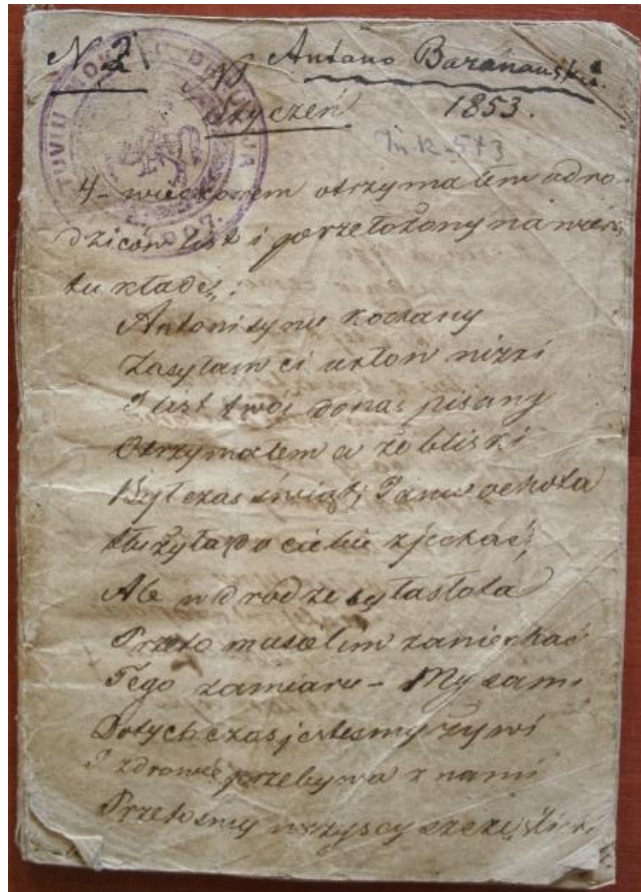 N 2
Antano Baranausko.
Styczeń 1853.
573
4 – wieczorem otrzymałem od ro-
dziców list i przełożony na wier
tu kładę:
Antoni synu kochany
Zasyłam ci ukłon nizki
I list twój do nas pisany
Otrzymałem a że bliski
Był czas świąt; Pana ochota
Służyła do ciebie zjechać,
Ale w drodze była słota
Przeto musielim zaniechać
Tego zamiaru – My sami
Dotychczas jesteśmy żywi
I zdrowie przebywa z nami
Przetośmy wszyscy szczęśliwi